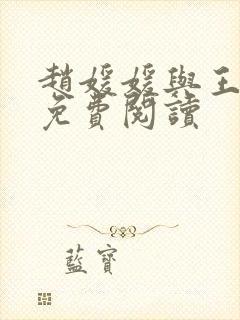 趙媛媛與王
免費閱讀
藍寶